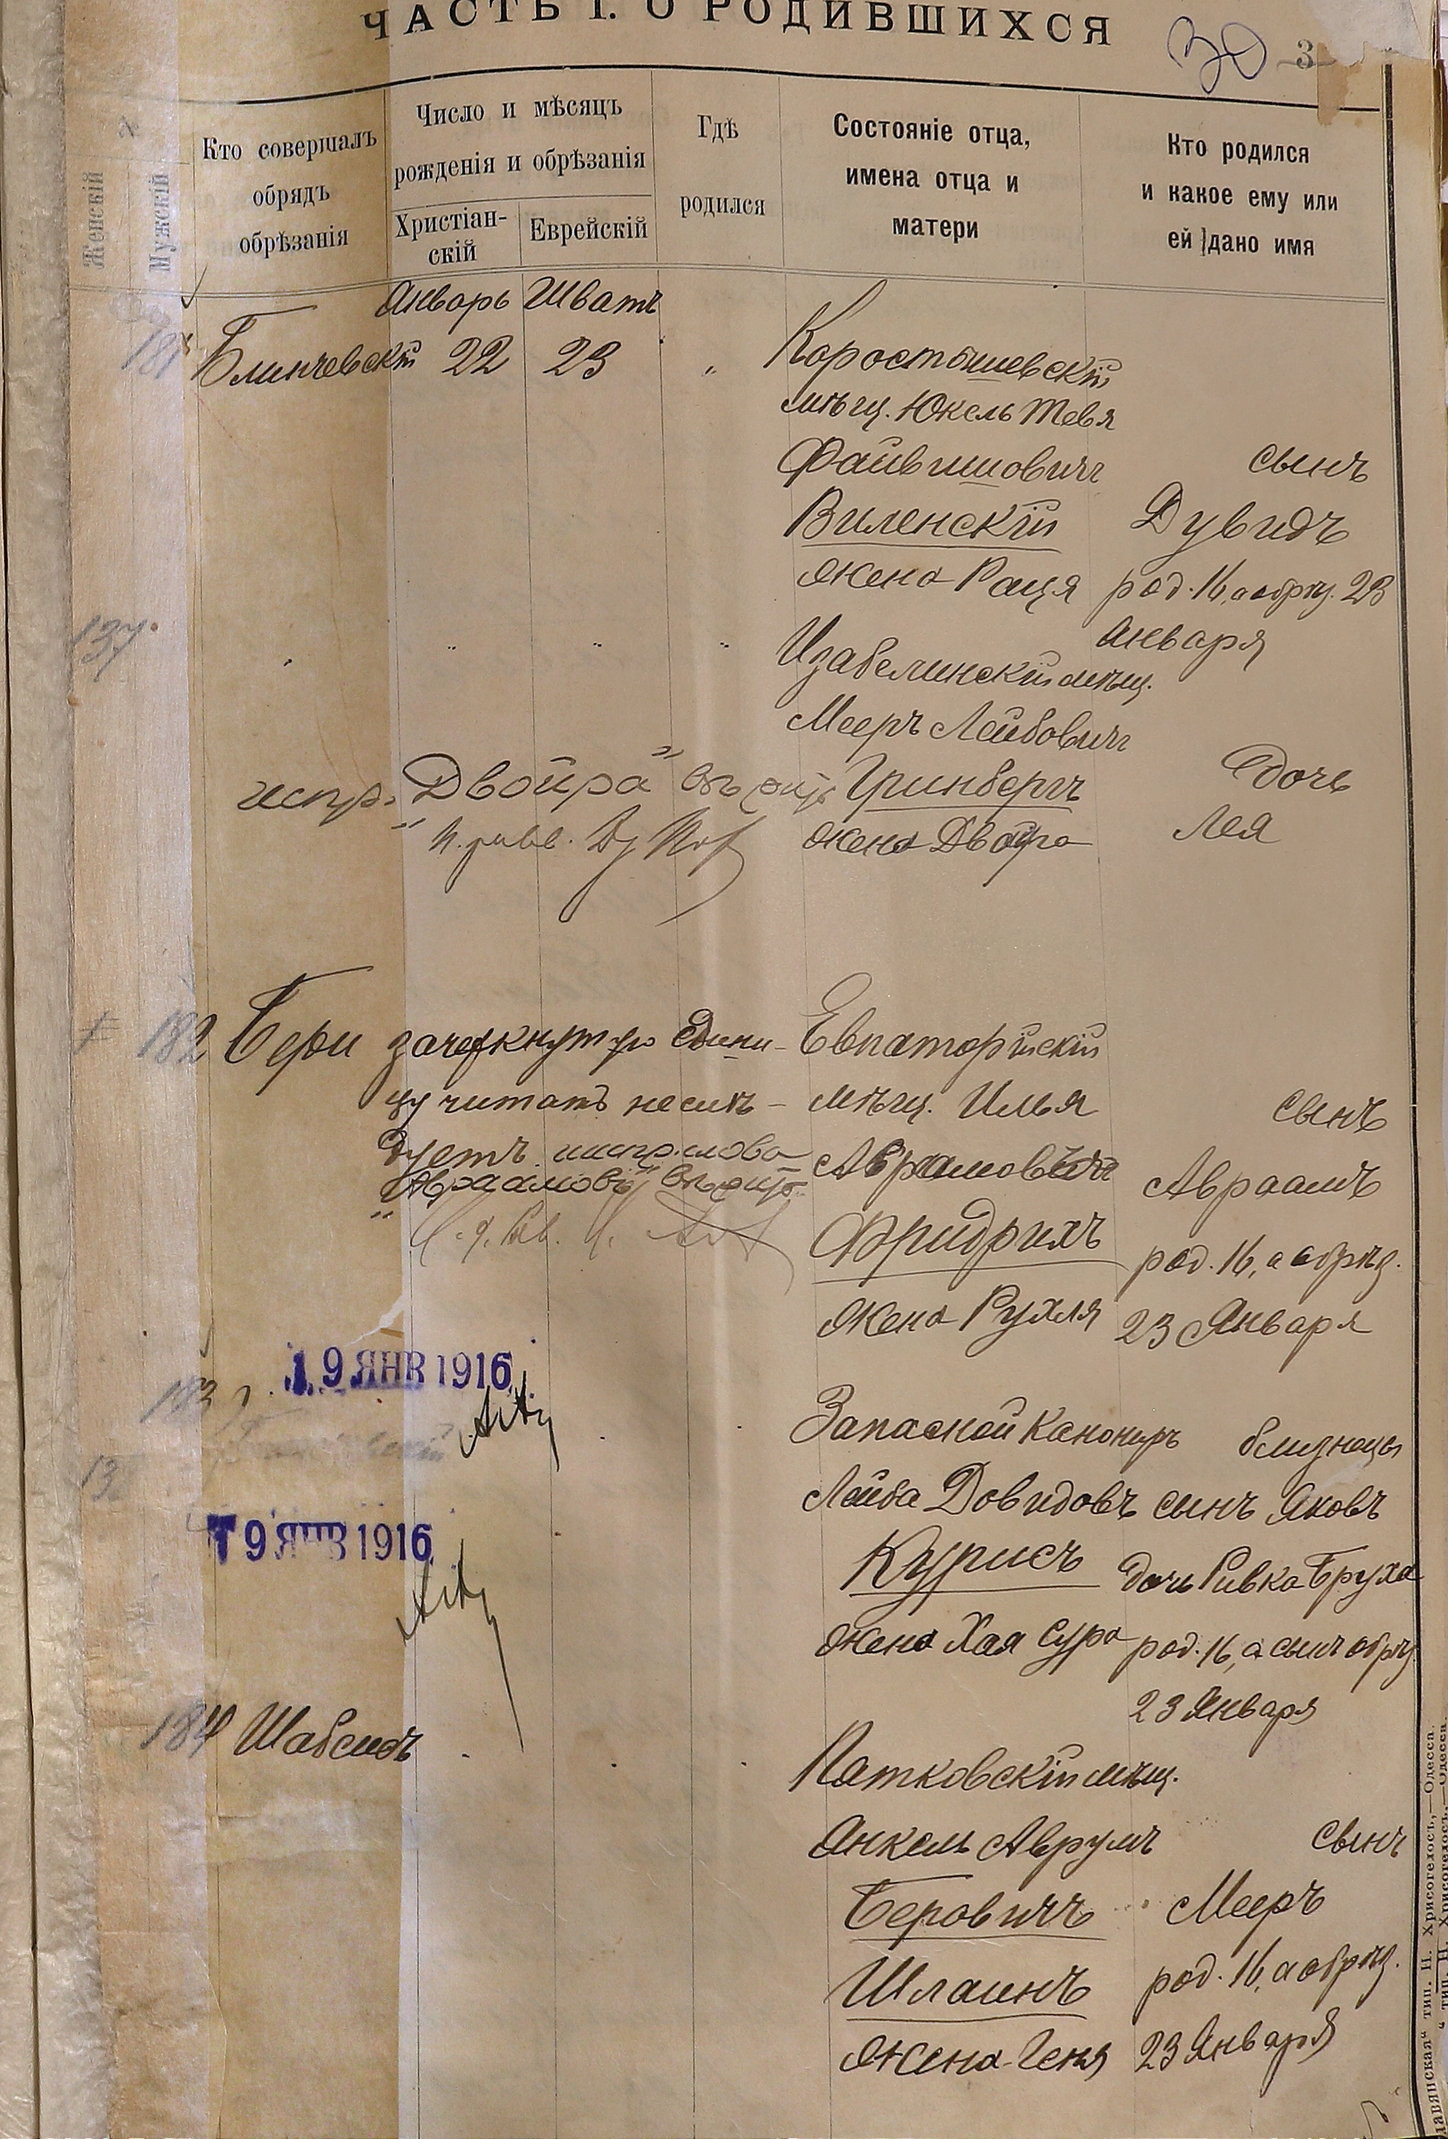 ЧАСТЬ I. О РОДИВШИХСЯ
30
3
Женскій
Мужскій
Кто совершалъ
обрядъ
обрѣзанія
Число и мѣсяцъ
рожденія и обрѣзанія
Христіан-
скій
Еврейскій
Гдѣ
родился
Состояніе отца,
имена отца и
матери
Кто родился
и какое ему или
ей дано имя
Январь Шватъ
181 Блинчевскій 22 23 „ Коростышевскій
мѣщ. Юкель Тевя
Файвишовичъ сынъ
Виленскій Дувидъ
жена Рація род. 16, а обрѣз. 23
Января
137. Изабелинскій мѣщ.
Мееръ Лейбовичъ
испр. „Двойра“ Гринбергъ дочь
жена Двойра Лея
182 Бери зачеркнутую едини- Евпаторійскій
цу читать неслѣ- мѣщ. Илья сынъ
дуетъ испр. слово Аврамовъ Авраамъ
„Авраамовъ“
Фридрихъ род. 16, а обрѣз.
жена Рухля 23 Января
19 ЯНВ 1916
183 Запасной Канониръ близнецы
13 Лейба Довидовъ сынъ Яковъ
19 ЯНВ 1916
Курисъ дочь Ривка Бруха
жена Хая Сура род. 16, а сынъ обрѣз.
23 Января
184 Шабсисъ Пятковскій мѣщ.
Янкель Аврумъ сынъ
Беровичъ Мееръ
Шлаинъ род. 16, а обрѣз.
жена Геня 23 Января